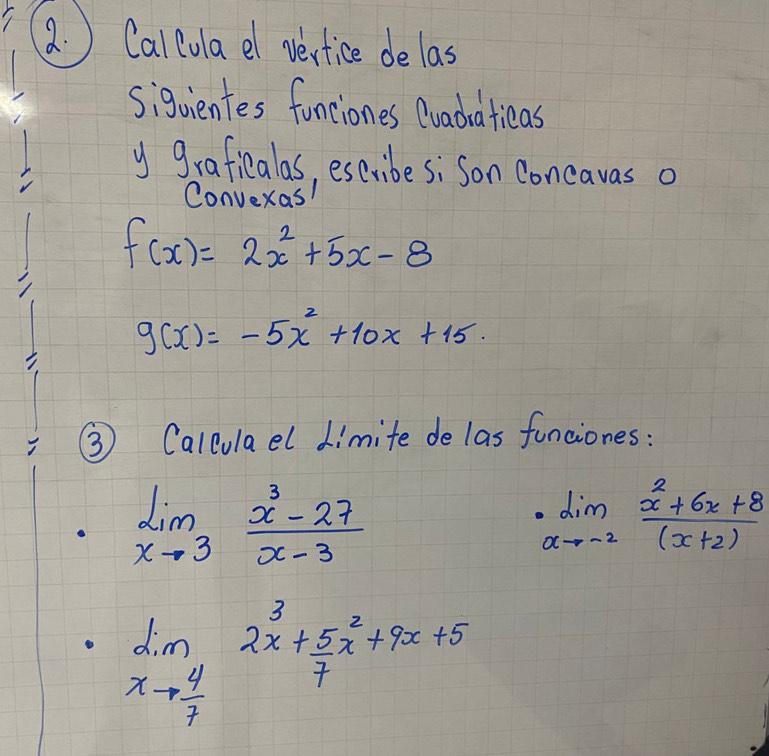 2. Calcula el vértice de las
siguientes funciones Cuadráticas
y graficalas, escribe si Son Concavas o
Convexas!
f(x) = 2x² + 5x - 8
g(x) = -5x² + 10x + 15.
3 Calcula el Límite de las funciones:
• Lim x→3 (x³ - 27)/(x - 3) • Lim x→-2 (x² + 6x + 8)/((x+2))
• Lim x→4/7 2x³ + 5/7 x² + 9x + 5